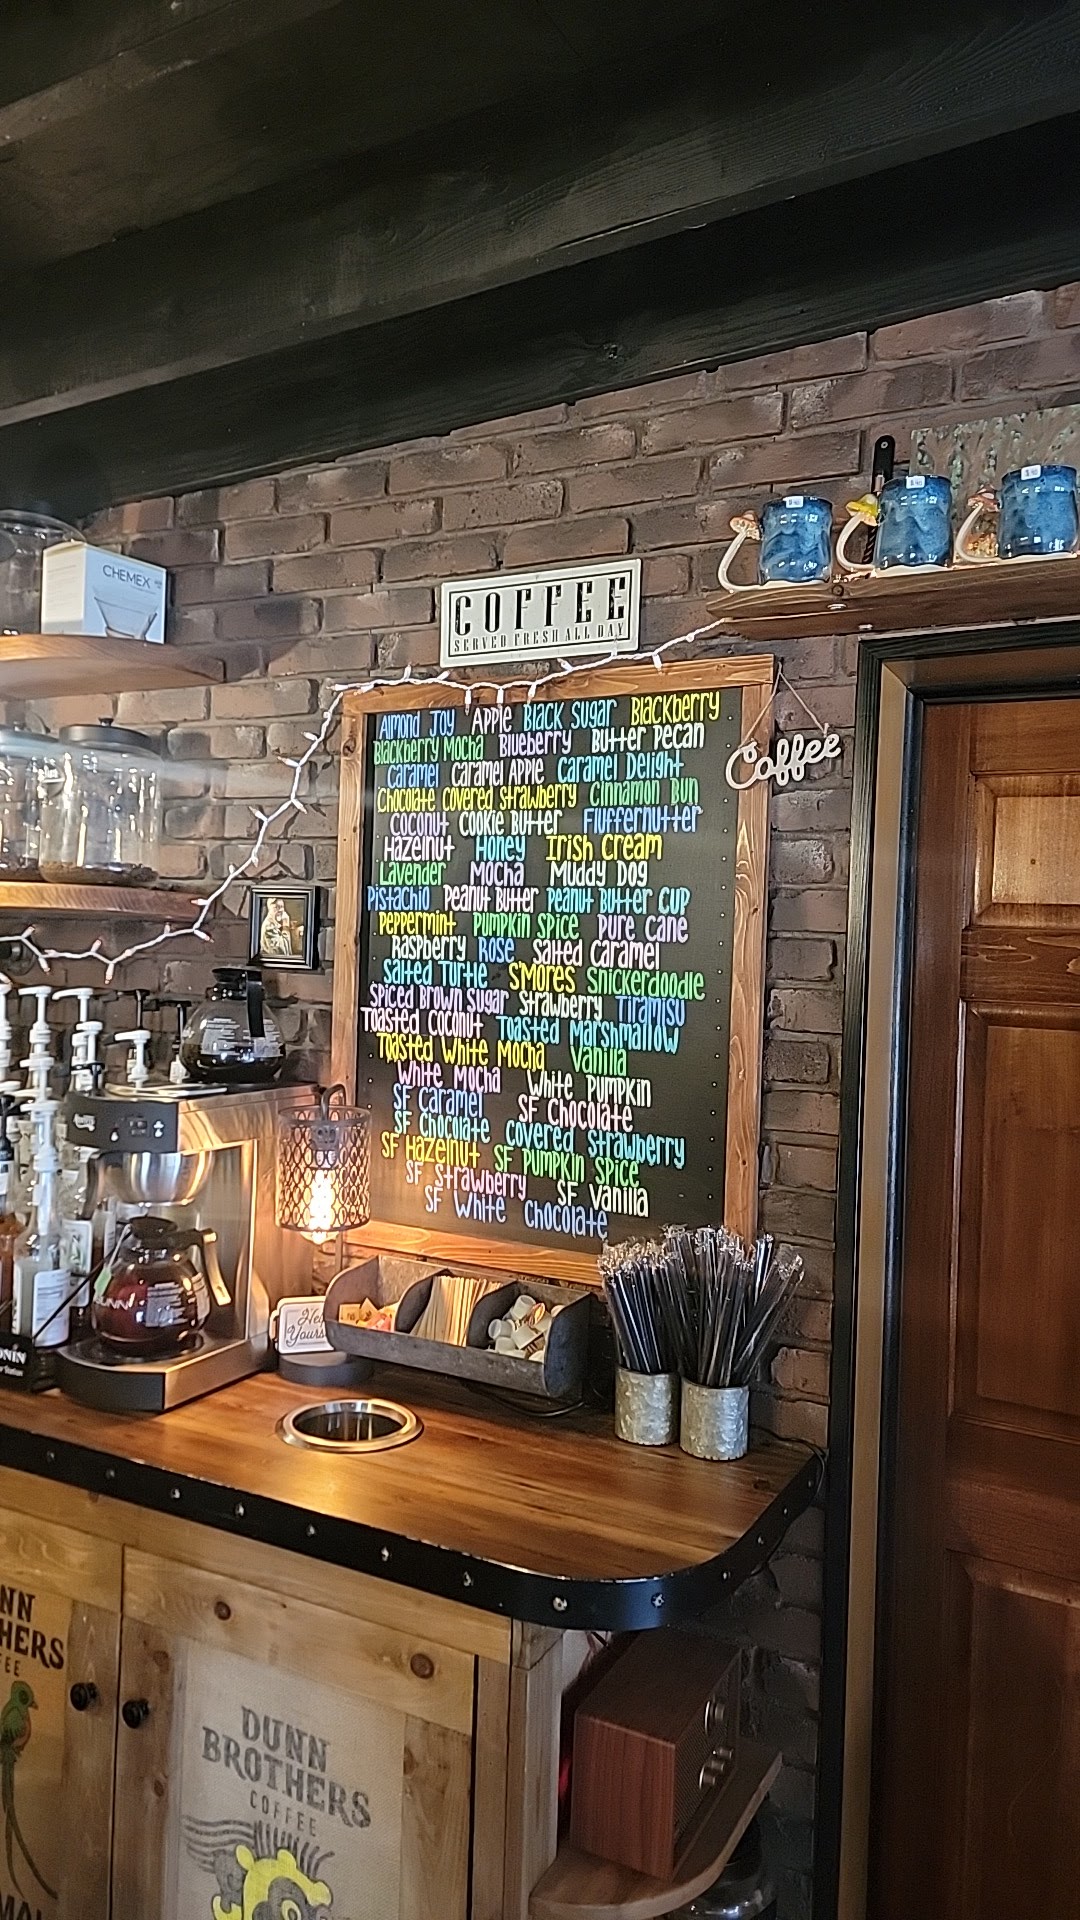 CHEMEX
COFFEE
SERVED FRESH ALL DAY
Coffee
Almond Joy Apple Black Sugar Blackberry
Blackberry Mocha Blueberry Butter Pecan
Caramel Caramel Apple Caramel Delight
Chocolate Covered Strawberry Cinnamon Bun
Coconut Cookie Butter Fluffernutter
Hazelnut Honey Irish Cream
Lavender Mocha Muddy Dog
Pistachio Peanut Butter Peanut Butter Cup
Peppermint Pumpkin Spice Pure Cane
Raspberry Rose Salted Caramel
Salted Turtle S'Mores Snickerdoodle
Spiced Brown Sugar Strawberry Tiramisu
Toasted Coconut Toasted Marshmallow
Toasted White Mocha Vanilla
White Mocha White Pumpkin
SF Caramel SF Chocolate
SF Chocolate Covered Strawberry
SF Hazelnut SF Pumpkin Spice
SF Strawberry SF Vanilla
SF White Chocolate
NN
HERS
DUNN
BROTHERS
COFFEE